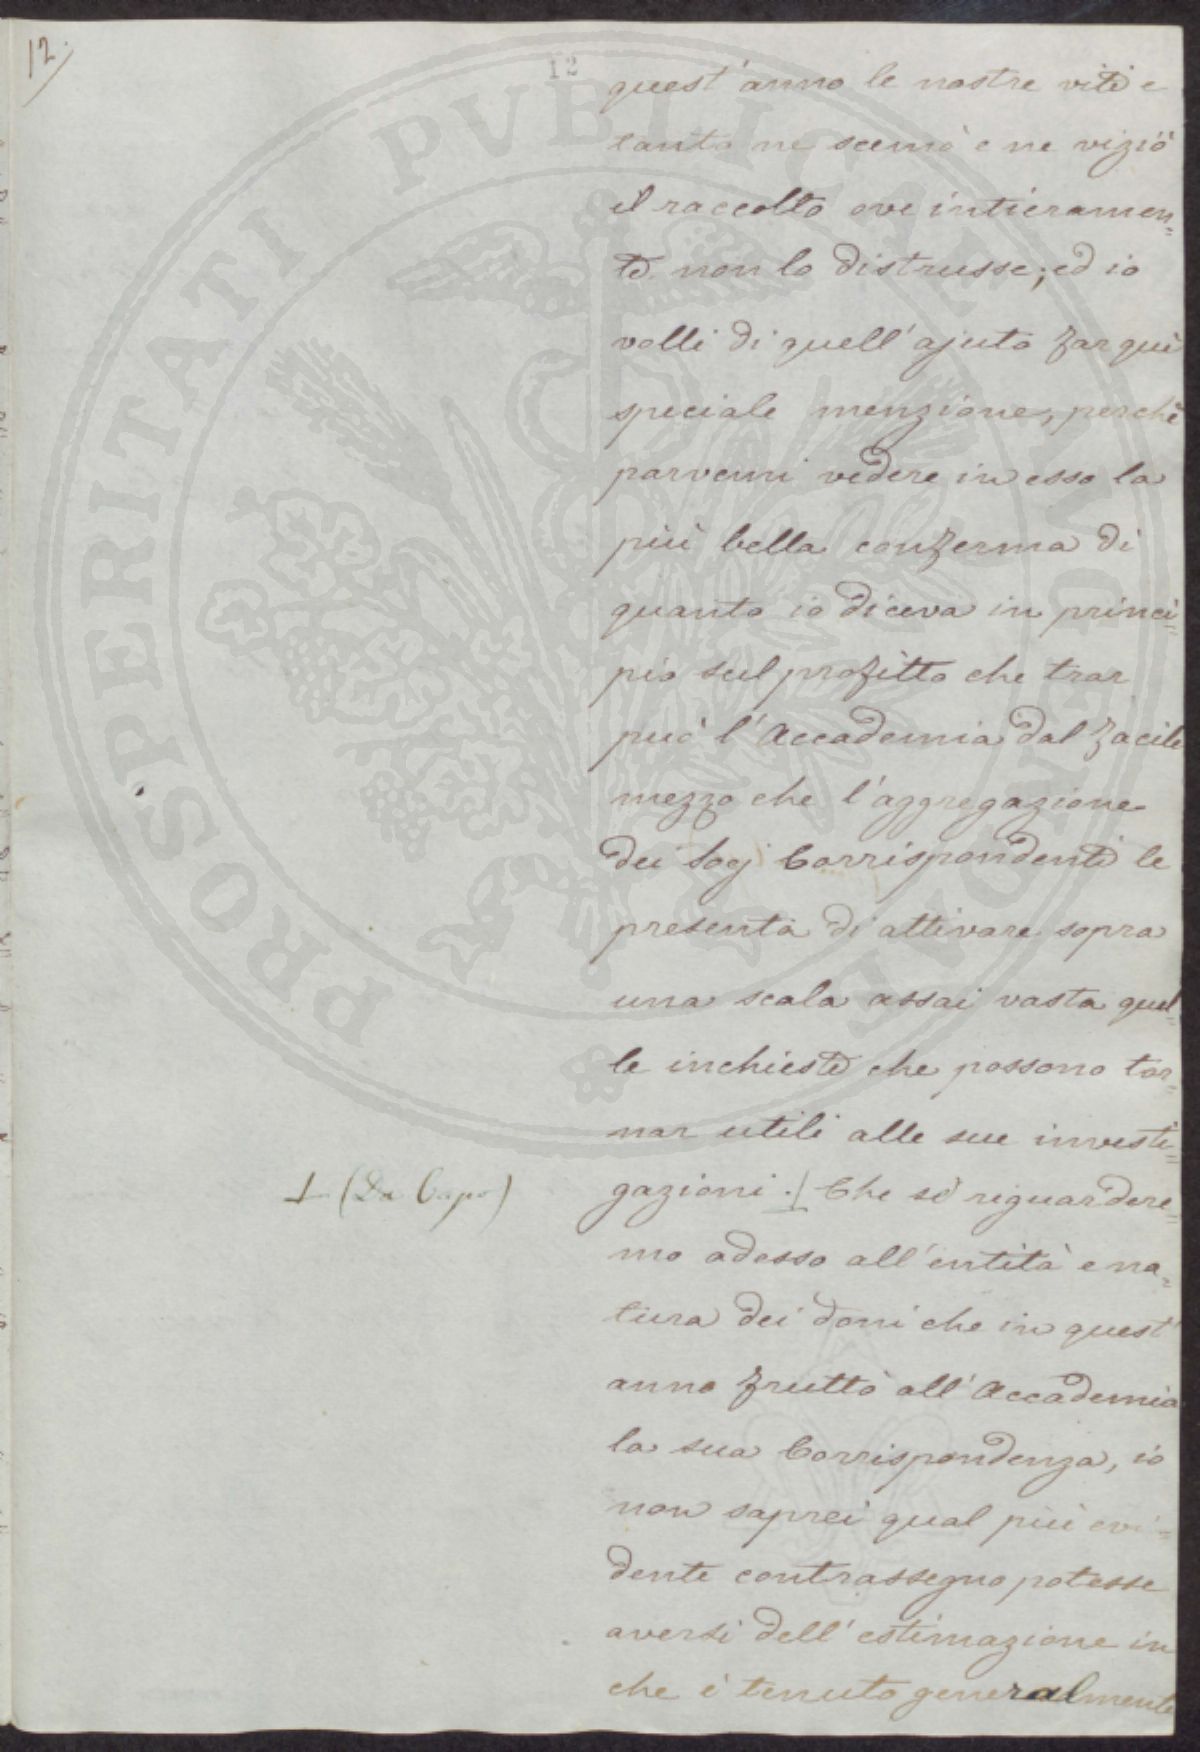 12.
12
quest'anno le nostre viti e
tanto ne scemò e ne viziò
il raccolto ove intieramen=
te non lo distrusse; ed io
volli di quell'ajuto far quì
speciale menzione, perchè
parvemi vedere in esso la
più bella conferma di
quanto io diceva in princi=
pio sul profitto che trar
può l'Accademia dal facile
mezzo che l'aggregazione
dei Socj Corrispondenti le
presenta di attivare sopra
una scala assai vasta quel=
le inchieste che possono tor=
nar utili alle sue investi=
⊥ (Da Capo)
gazioni. ⊥ Che se riguardere=
mo adesso all'entità e na=
tura dei doni che in quest'
anno fruttò all'Accademia
la sua Corrispondenza, io
non saprei qual più evi=
dente contrassegno potesse
aversi dell'estimazione in
che è tenuto generalmente
PROSPERITATI PVBLICAE